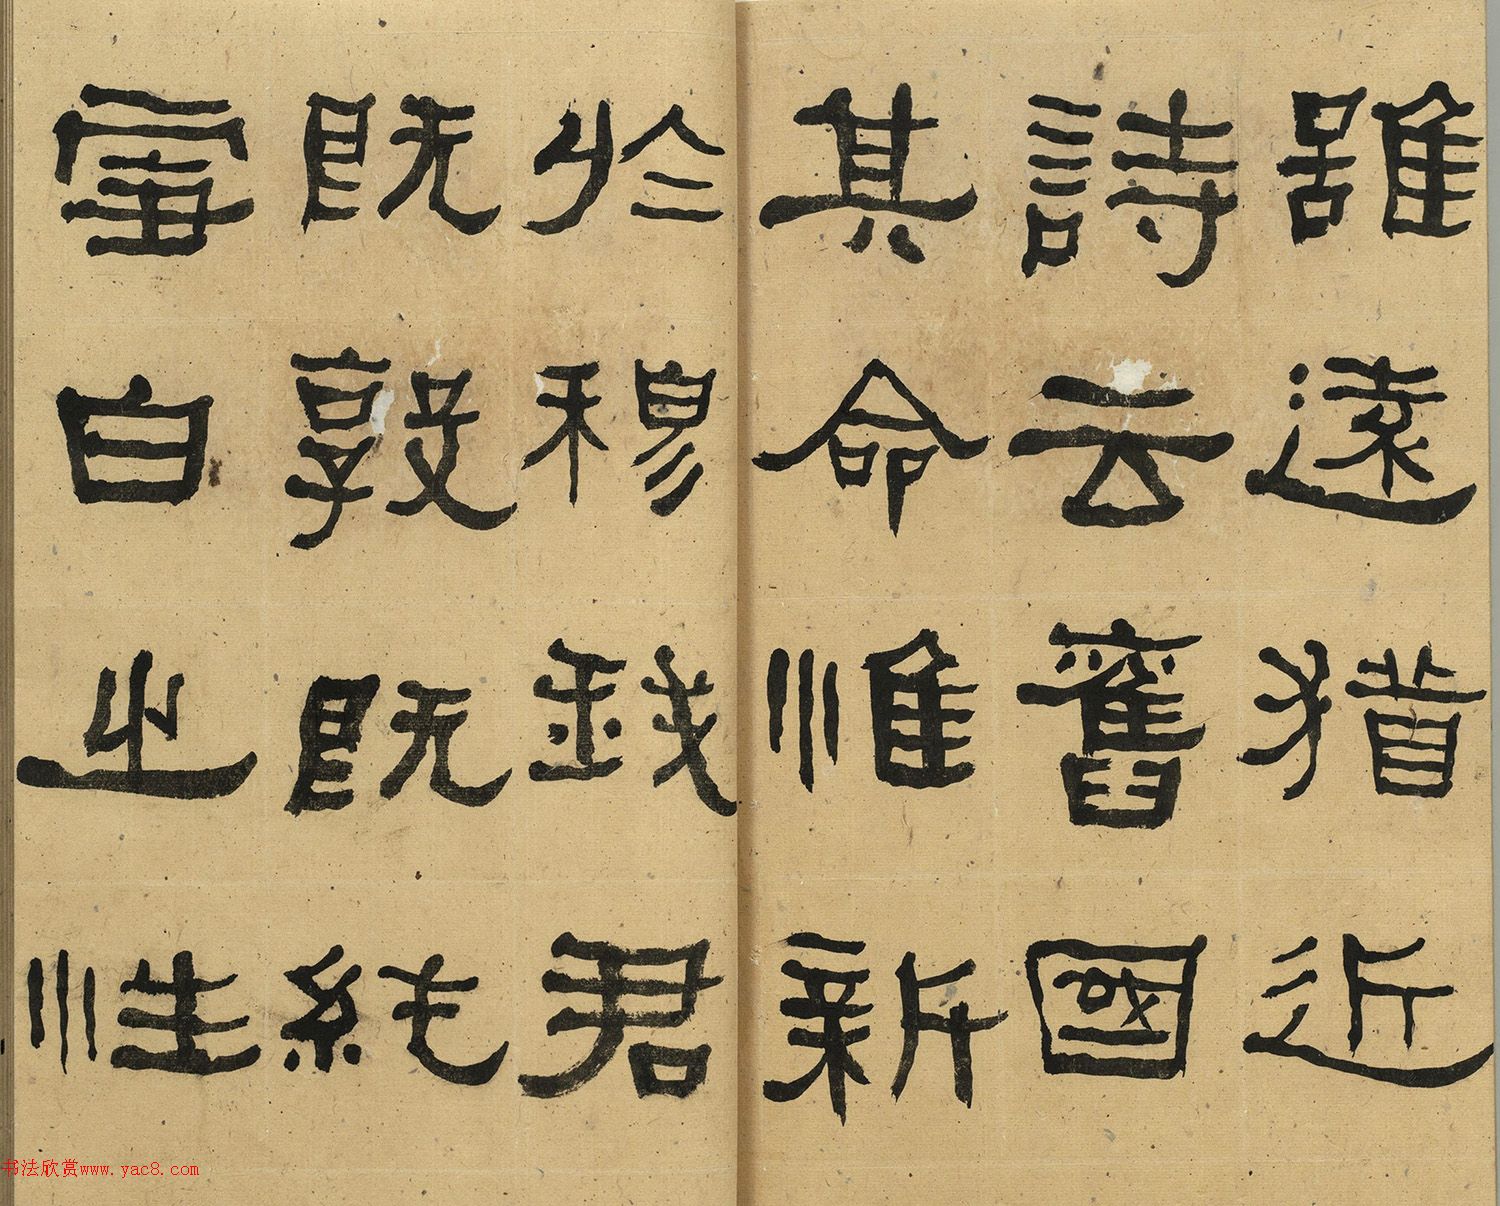 雖遠猶近
詩云舊國
其命惟新
於穆我君
既敦既純
雪白之性
书法欣赏www.yac8.com